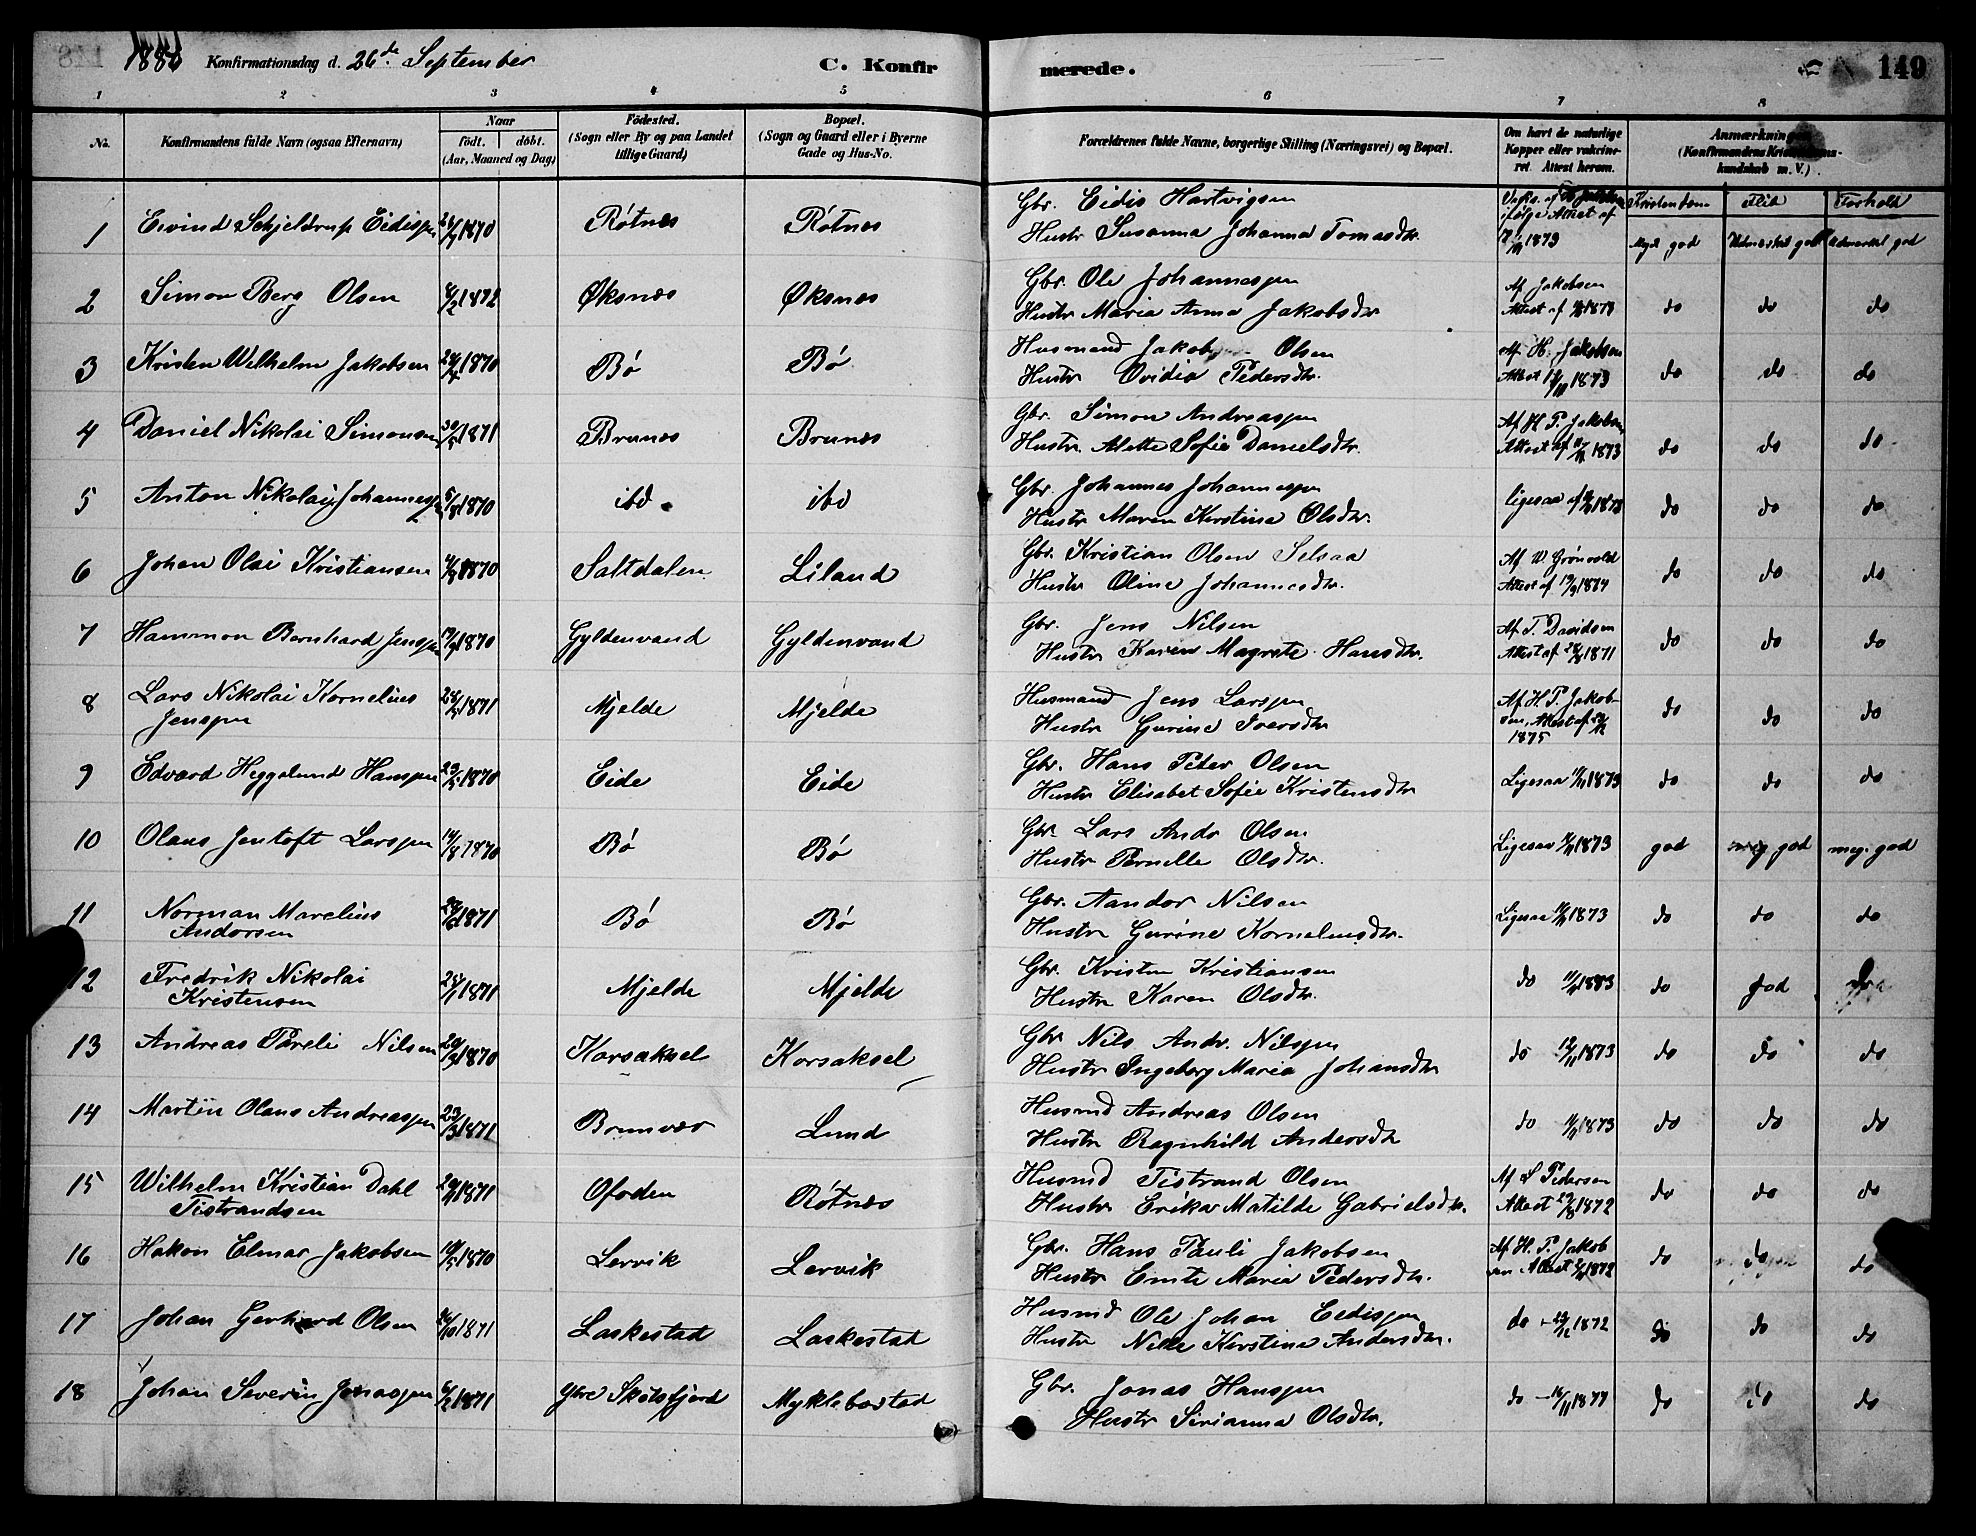 1886 Konfirmationsdag d. 26de September C. Konfirmerede. 149
1 2 3 4 5 6 7 8
No. Konfirmandens fulde Navn (ogsaa Efternavn) Naar født. døbt. (Aar, Maaned og Dag) Fødested. (Sogn eller By og paa Landet tillige Gaard) Bopæl. (Sogn og Gaard eller i Byerne Gade og Hus-No. Forældrenes fulde Navne, borgerlige Stilling (Næringsvei) og Bopæl. Om havt de naturlige Kopper eller vakcineret. Attest herom. Anmærkninger (Konfirmandens Kristendomskundskab m. V.)
Kristendom Flid Forhold
1 Eivind Schjeldrup Eidissen 1870 Røtnes Røtnes Gbr. Eidis Hartvigsen
Hustr Susanna Johanna Tomasdtr. ifølge Attest af 1873 Meget god Udmærket god Udmærket god
2 Simon Berg Olsen 1872 Øksnes Øksnes Gbr. Ole Johannessen
Hustr Maria Anna Jakobsdtr Af Jakobsen Attest af 1873 do do do
3 Kristen Wilhelm Jakobsen 1870 Bø Bø Husmand Jakob Olsen
Hustr Ovidia Pedersdtr. af H. Jakobsen Attest 1873 do do do
4 Daniel Nikolai Simonsen 1871 Brunes Brunes Gbr. Simon Andreassen
Hustr. Alette Sofie Danielsdtr. Af H. P. Jakobsen Attest af 1873 do do do
5 Anton Nikolai Johannessen 1870 ibd. ibd Gbr. Johannes Johannessen
Hustr Maren Kirstina Olsdtr. ligesaa 1873 do do do
6 Johan Olai Kristiansen 1870 Saltdalen Liland Gbr. Kristian Olsen Selsaa
Hustr Oline Johannesdtr. Af W. Grönvold Attest af 19/9 1874 do do do
7 Hammon Bernhard Jenssen 1870 Gyldenvand Gyldenvand Gbr. Jens Nilsen
Hustr Karen Magrete Hansdtr. Af T. Davidsen Attest af 1871 do do do
8 Lars Nikolai Kornelius
Jenssen 1871 Mjelde Mjelde Husmand Jens Larssen
Hustr Gurine Iversdtr Af H. P. Jakobsen, Attest af 1875 do do do
9 Edvard Heggelund Hanssen 1870 Eide Eide Gbr. Hans Peter Olsen
Hustr Elisabet Sofie Kristensdtr Ligesaa 1873 do do do
10 Olaus Jentoft Larssen 14/8 1870 Bø Bø Gbr Lars Andr Olsen
Hustr Pernelle Olsdtr. Ligesaa 1873 god meg god meg. god
11 Norman Marelius
Andorsen 1871 Bø Bø Gbr. Aandor Nilsen
Hustr Gurine Korneliusdtr. Ligesaa 1873 do do do
12 Fredrik Nikolai
Kristensen 1871 Mjelde Mjelde Gbr. Kristen Kristiansen
Hustr Karen Olsdtr. do 1883 do god do
13 Andreas Pareli Nilsen 1870 Korsaksel Korsaksel Gbr Nils Andr. Nilssen
Hustr Ingeborg Maria Johansdtr do 1873 do do do
14 Martin Olaus Andreassen 23/3 1871 Brunvær Lund Husmd Andreas Olsen
Hustr Ragnhild Andersdtr do 1873 do do do
15 Wilhelm Kristian Dahl
Tistrandsen 1871 Ofoden Røtnes Husmd Tistrand Olsen
Hustr Erika Matilde Gabrielsdtr. Af L Pedersen Attest 1872 do do do
16 Hakon Elmar Jakobsen 1870 Lervik Lervik Gbr. Hans Pauli Jakobsen
Hustr Emte Maria Pedersdtr. Af H. P. Jakobsen Attest 1872 do do do
17 Johan Gerhard Olsen 1871 Laskestad Laskestad Husmd Ole Johan Eedissen
Hustr Nille Kirstina Andersdtr. do 1872 do do do
18 Johan Severin Jonassen 1871 Ytre Skotsfjord Myklebostad Gbr. Jonas Hanssen
Hustr Sirianna Olsdtr. do 16/11 1877 do do do